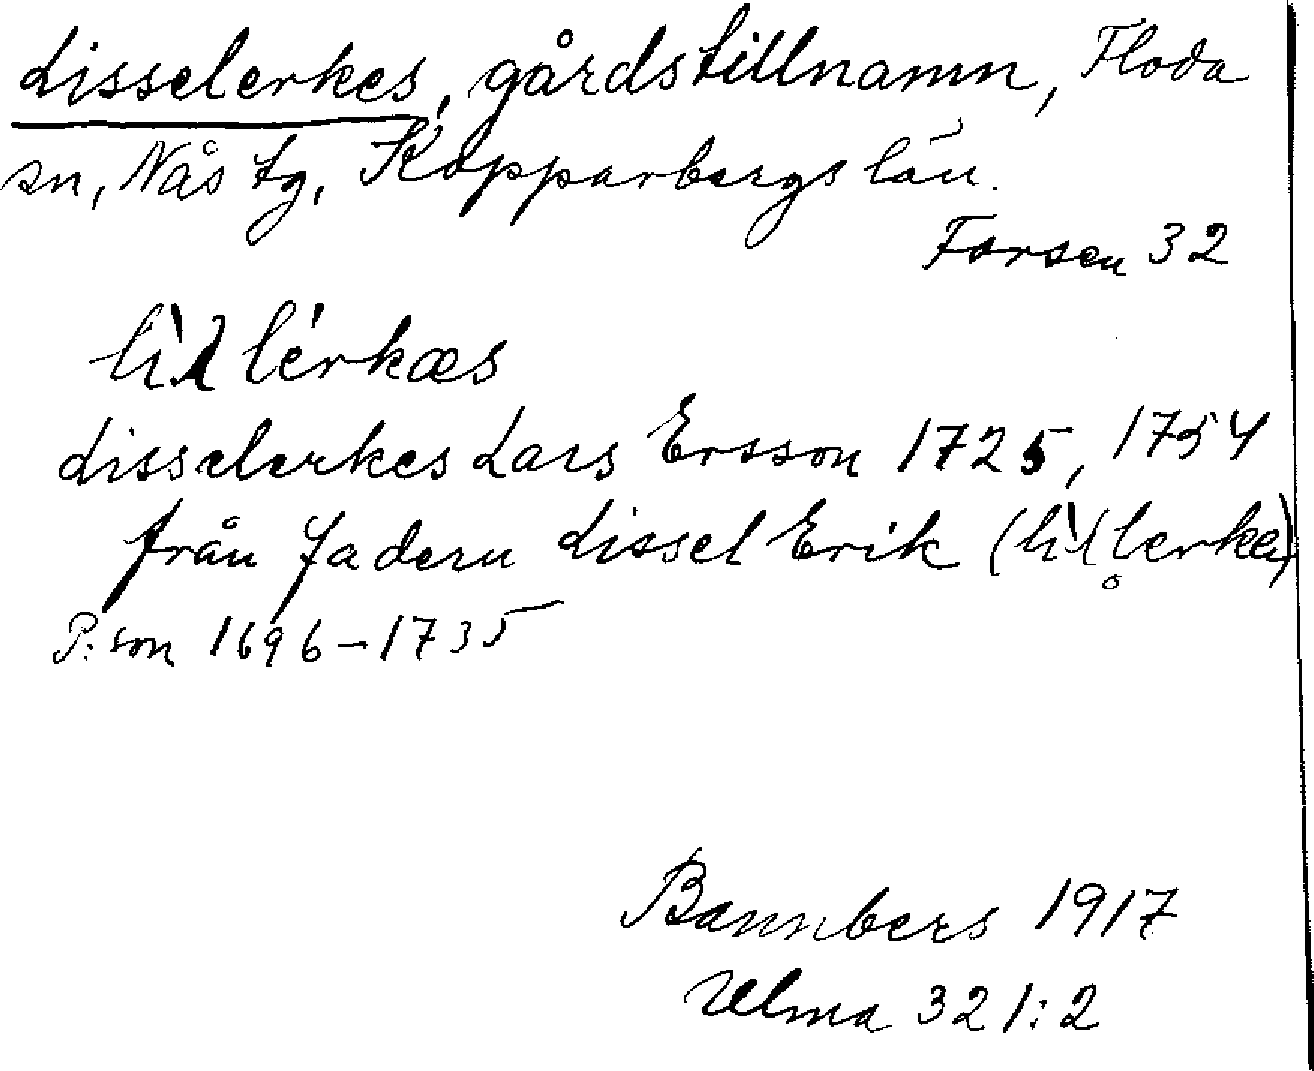 Lisselerkes, gårdstillnamn, Floda
sn, Nås tg, Kopparbergs län.
Forsen 32
Lisselerkes Lars Ersson 1725, 1754
från fadern Lissel Erik
P:son 1696-1735
Bannbers 1917
Ulma 321:2